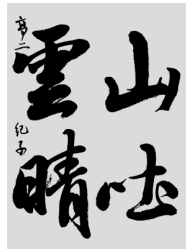 山吐
雲晴
亨二
紀子